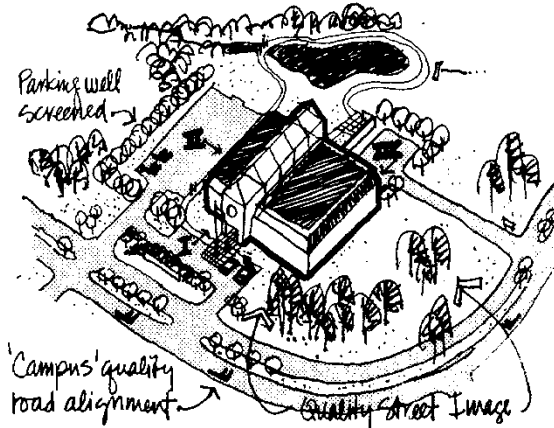 Parking well
screened
III
III
I
'Campus' quality
road alignment
Quality Street Image